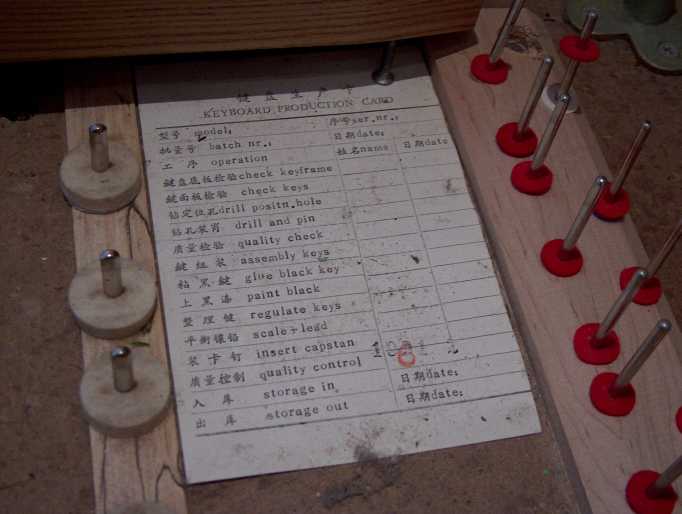 键盘生产卡
KEYBOARD PRODUCTION CARD
型号 model: 序号ser.nr.:
批量号 batch nr.: 日期date:
工序 operation 姓名name 日期date
鍵盘底板检验check keyframe
鍵面板检验 check keys
钻定位孔drill positn.hole
钻孔装肖 drill and pin
质量检验 quality check
鍵组装 assembly keys
粘黑鍵 glue black key
上黑漆 paint black
整理健 regulate keys
平衡镶铅 scale+lead
装卡钉 insert capstan
质量控制 quality control
入库 storage in 日期date:
出库 storage out 日期date: